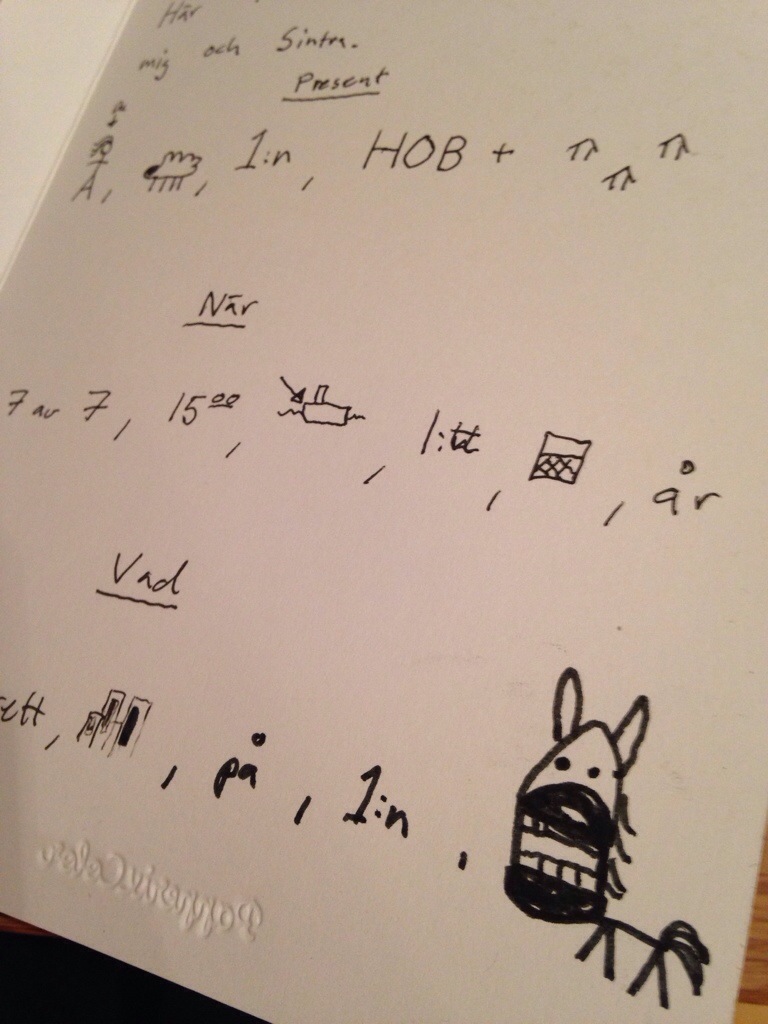 Här
mig och Sintra.
Present
A, , 1:n, HOB + π π π
När
7 av 7, 15⁰⁰, , litt, , år
Vad
ett, , på, 1:n,